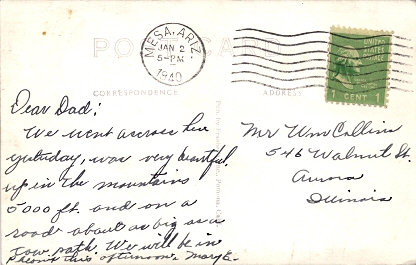 POST CARD
MESA, ARIZ.
JAN 2
5-PM
1940
UNITED STATES POSTAGE
1 CENT 1
CORRESPONDENCE
ADDRESS
Dear Dad:
We went across here
yesterday, was very beautiful,
up in the mountains
5000 ft. and on a
road about as big as a
cow path. We will be in
this afternoon. Mary E.
Mr Wm Collins
546 Walnut St.
Aurora
Illinois